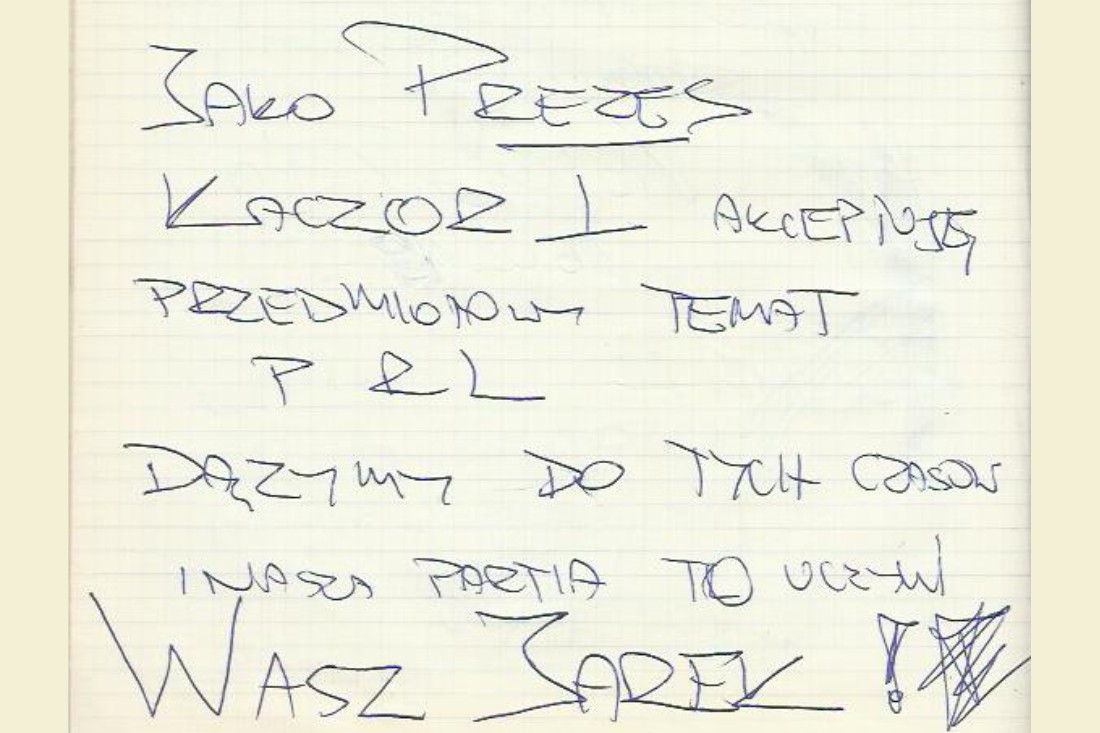 JAKO PREZES
KACZOR I AKCEPTUJĘ
PRZEDMIOTOWY TEMAT
P R L
DĄZYMY DO TYCH CZASOW
I NASZA PARTIA TO UCZYNI
WASZ JAREK !